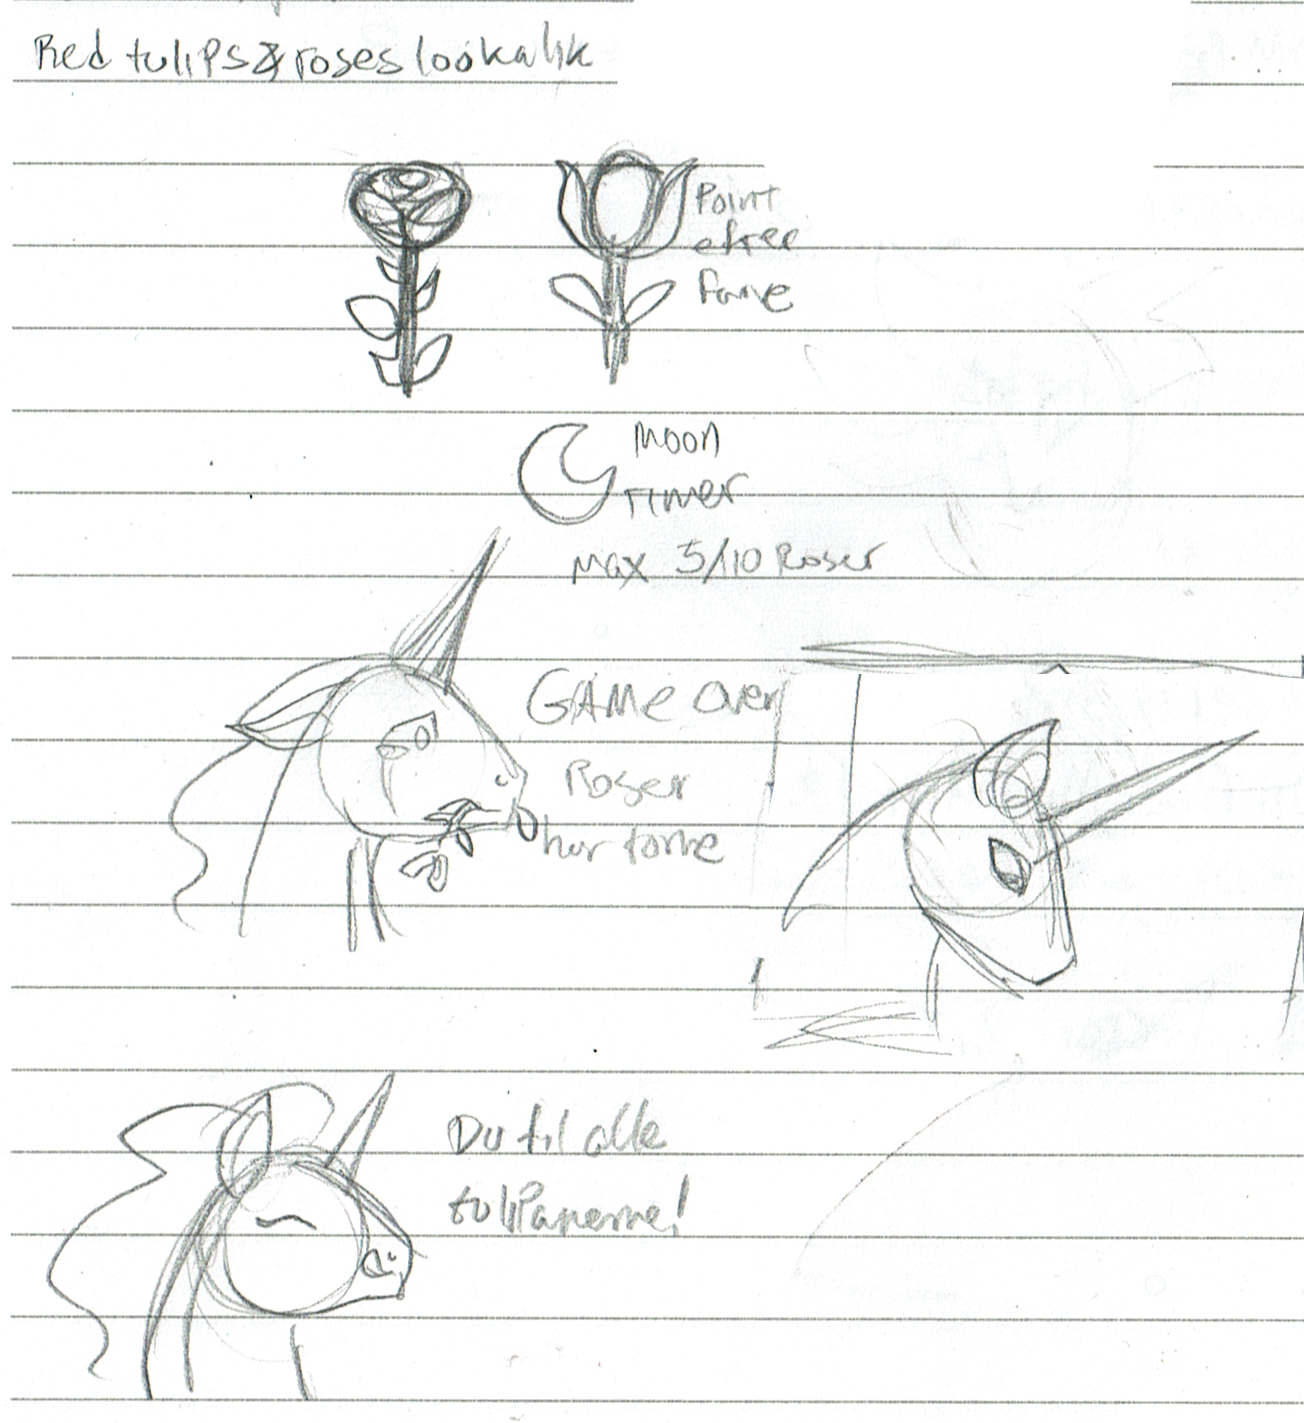 Red tulips & roses lookalik
Point
efter
farve
Moon
Timer
Max 5/10 Roser
GAMe over
Roser
har torne
Du fil alle
tuliPanerne!